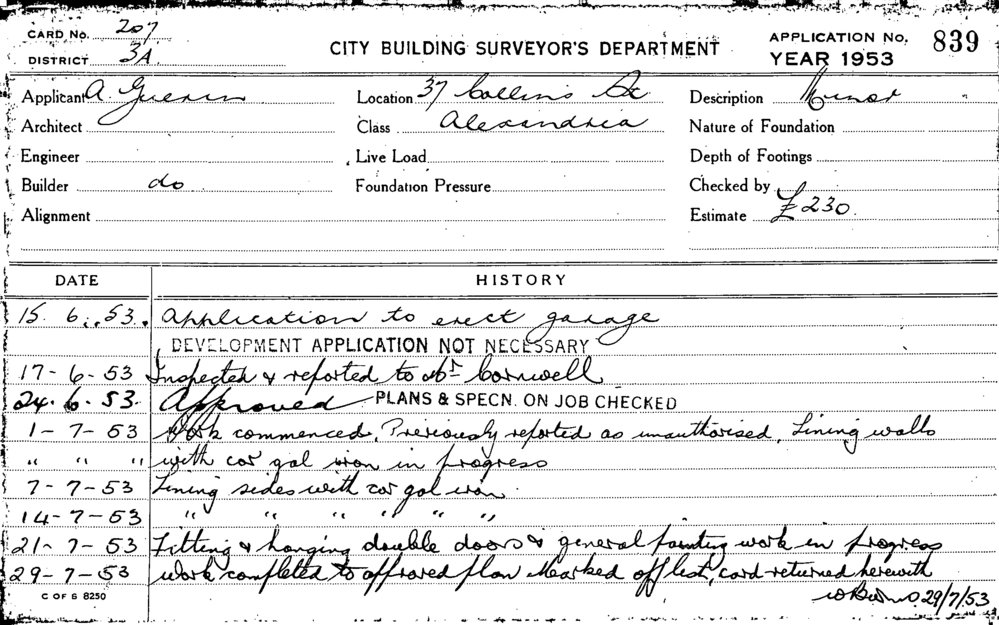 CARD No. 207
DISTRICT 3A.
CITY BUILDING SURVEYOR'S DEPARTMENT
APPLICATION No. 839
YEAR 1953
Applicant A Guerin
Location 37 Collins St
Description Minor
Architect
Class Alexandria
Nature of Foundation
Engineer
Live Load
Depth of Footings
Builder do
Foundation Pressure
Checked by
Alignment
Estimate £230
DATE HISTORY
15. 6. 53. Application to erect garage
DEVELOPMENT APPLICATION NOT NECESSARY
17-6-53 Inspected & reported to Mr Cornwell
24.6.53. Approved PLANS & SPECN. ON JOB CHECKED
1-7-53 Work commenced, Previously reported as unauthorised, Lining walls
" " " with cor gal iron in progress
7-7-53 Lining sides with cor gal iron
14-7-53 " " " " " "
21-7-53 Fitting & hanging double doors & general painting work in progress
29-7-53 Work completed to approved plan Marked off list, card returned herewith
29/7/53
C OF S 8250